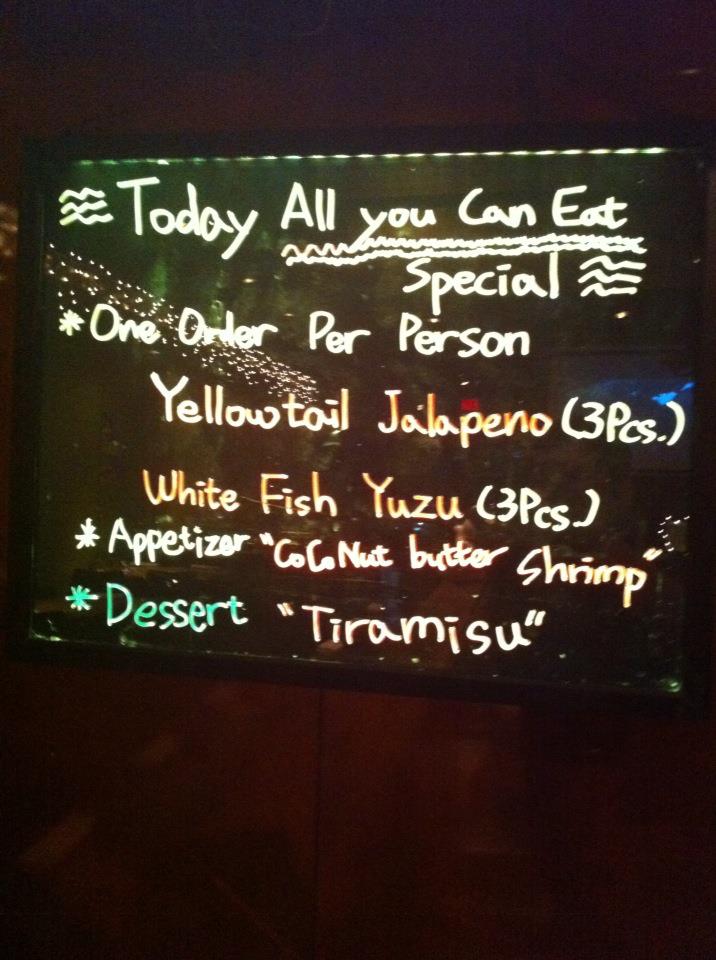 Today All you Can Eat
Special
* One Order Per Person
Yellowtail Jalapeno (3Pcs.)
White Fish Yuzu (3Pcs.)
* Appetizer "CoCoNut butter Shrimp"
* Dessert "Tiramisu"